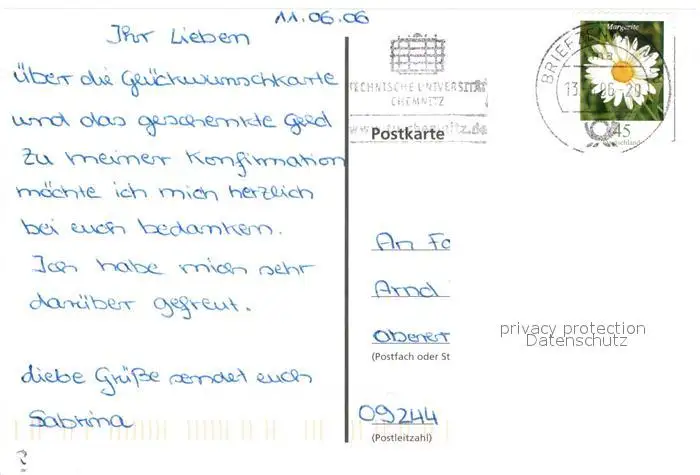 11.06.06
Ihr Lieben
über die Glückwunschkarte
und das geschenkte Geld
zu meiner Konfirmation
möchte ich mich herzlich
bei euch bedanken.
Ich habe mich sehr
darüber gefreut.
Liebe Grüße sendet euch
Sabrina
?
TECHNISCHE UNIVERSITÄT
CHEMNITZ
Postkarte
Margerite
BRIEFZ
45
An Fa
Arnd
Oberer
(Postfach oder St
09244
(Postleitzahl)
privacy protection
Datenschutz